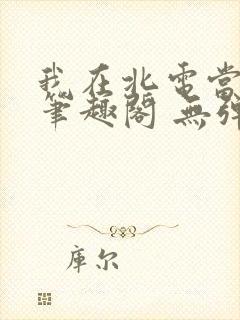 我在北電當
筆趣閣 無彈
庫尔